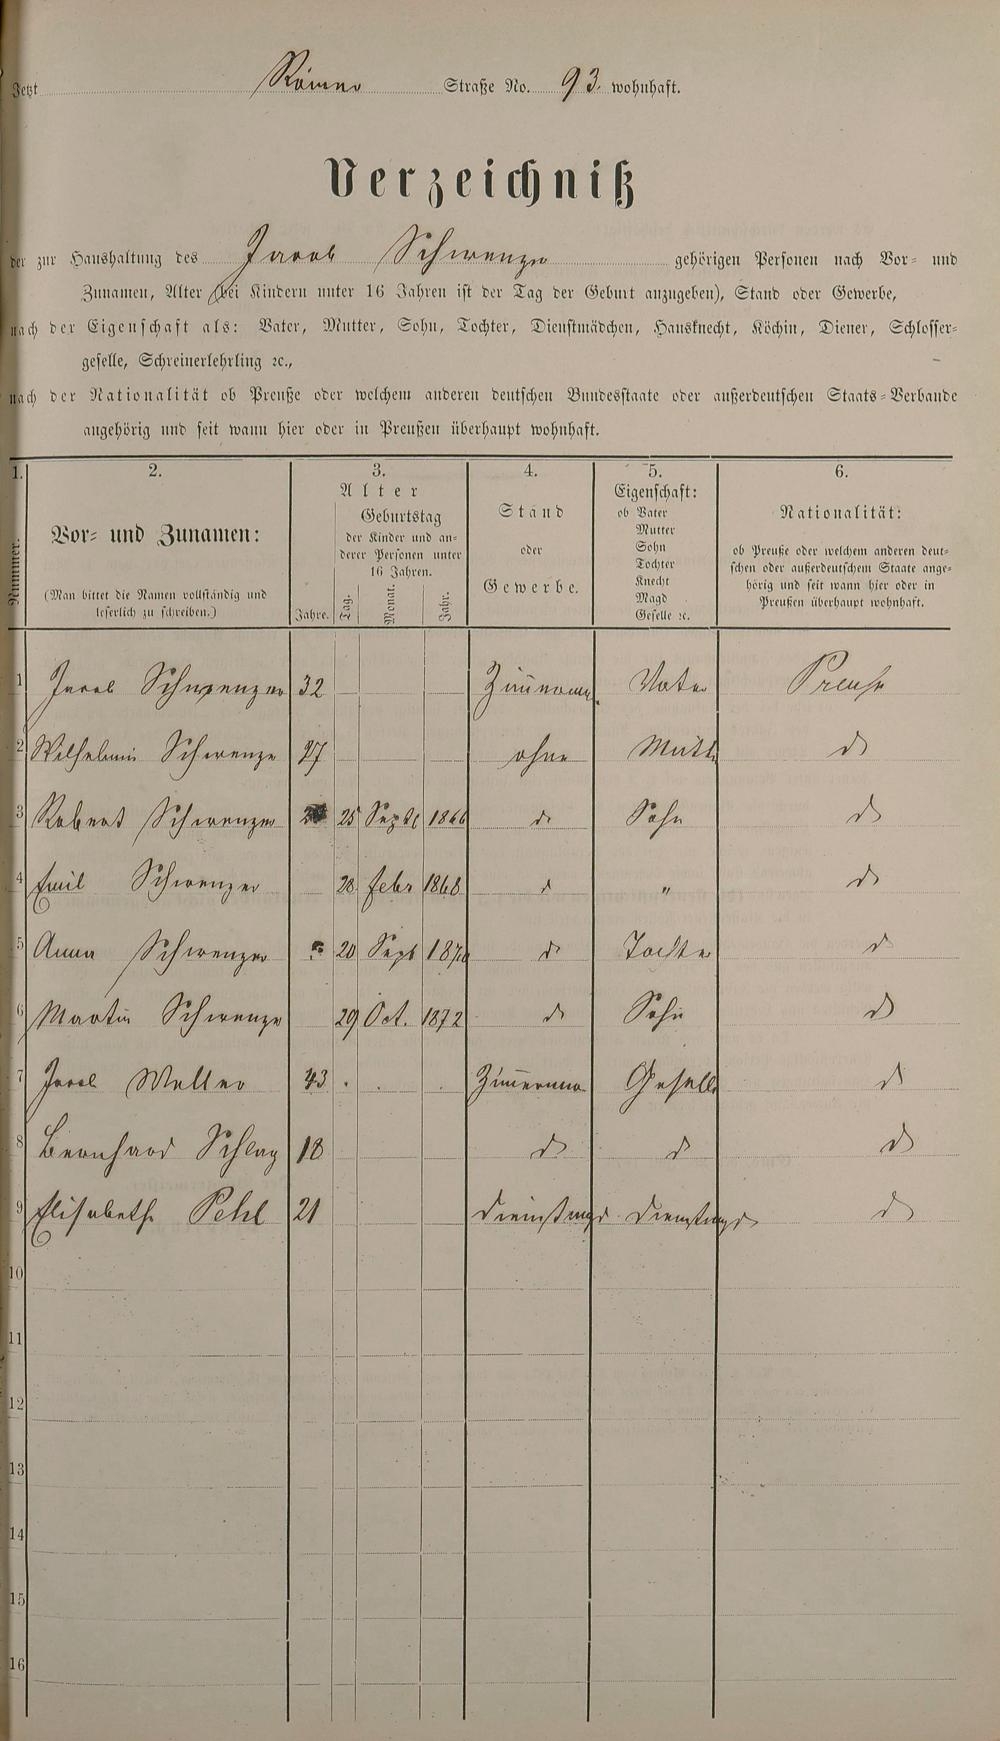 Jetzt Römer Straße No. 93. wohnhaft.
Verzeichniß
der zur Haushaltung des Jacob Schwenzer gehörigen Personen nach Vor- und
Zunamen, Alter (bei Kindern unter 16 Jahren ist der Tag der Geburt anzugeben), Stand oder Gewerbe,
nach der Eigenschaft als: Vater, Mutter, Sohn, Tochter, Dienstmädchen, Hausknecht, Köchin, Diener, Schlosser-
geselle, Schreinerlehrling ꝛc.,
nach der Nationalität ob Preuße oder welchem anderen deutschen Bundesstaate oder außerdeutschen Staats-Verbande
angehörig und seit wann hier oder in Preußen überhaupt wohnhaft.
1. 2. 3. 4. 5. 6.
Nummer.
Vor- und Zunamen:
(Man bittet die Namen vollständig und
leserlich zu schreiben.)
Alter
Jahre.
Geburtstag
der Kinder und an-
derer Personen unter
16 Jahren.
Tag. Monat. Jahr.
Stand
oder
Gewerbe.
Eigenschaft:
ob Vater
Mutter
Sohn
Tochter
Knecht
Magd
Geselle ꝛc.
Nationalität:
ob Preuße oder welchem anderen deut-
schen oder außerdeutschem Staate ange-
hörig und seit wann hier oder in
Preußen überhaupt wohnhaft.
1 Jacob Schwenzer 32 Vater Preuße
2 Wilhelmin Schwenze 27 ohne Mutt d
3 Robert Schwenzer 25 Sept 1866 d Sohn d
4 Emil Schwenzer 28 Febr 1868 d " d
5 Anna Schwenzer 20 Sept 1870 d Tochter d
6 Martin Schwenze 29 Oct. 1872 d Sohn d
7 Jacob 43 Zimmerma Gesell d
8 Bernhard Schlag 18 d d d
9 Elisabeth Pehl 21 Dienstmgd Dienstmgd d
10
11
12
13
14
15
16